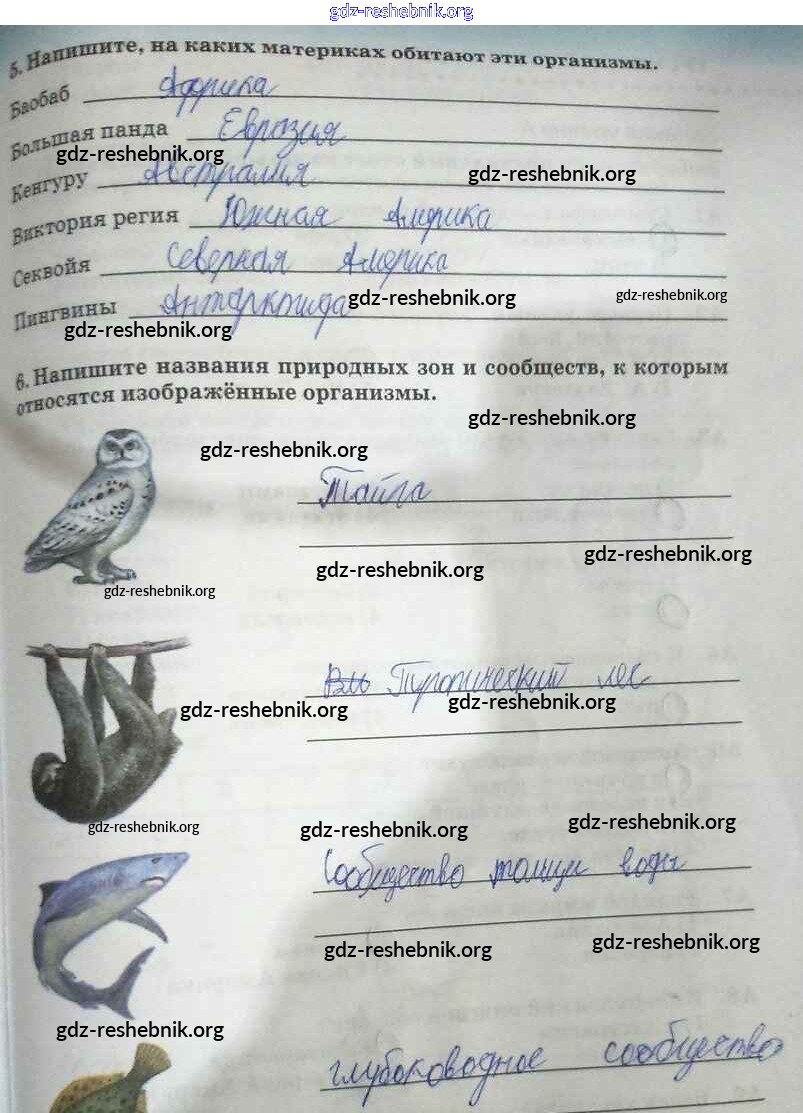 gdz-reshebnik.org
5. Напишите, на каких материках обитают эти организмы.
Баобаб Африка
Большая панда Евразия
gdz-reshebnik.org
Кенгуру Австралия gdz-reshebnik.org
Виктория регия Южная Америка
Секвойя Северная Америка
Пингвины Антарктида gdz-reshebnik.org gdz-reshebnik.org
gdz-reshebnik.org
6. Напишите названия природных зон и сообществ, к которым
относятся изображённые организмы.
gdz-reshebnik.org
gdz-reshebnik.org
Тайга
gdz-reshebnik.org
gdz-reshebnik.org
gdz-reshebnik.org
Тиропический лес
gdz-reshebnik.org gdz-reshebnik.org
gdz-reshebnik.org gdz-reshebnik.org gdz-reshebnik.org
Сообщество толщи воды
gdz-reshebnik.org gdz-reshebnik.org
gdz-reshebnik.org
глубоководное сообщество